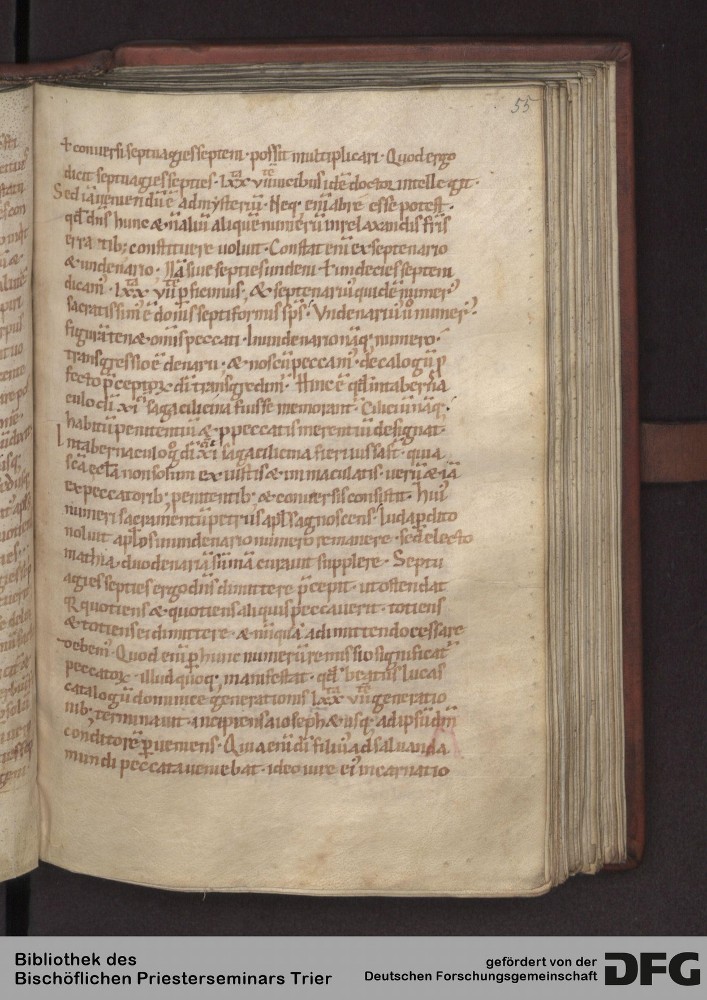 55
ł conuersi septuagies septem · possit multiplicari · Quod ergo
dicit septuagies septies · lxx uii uicibus idē doctor intellegit ·
Sed iā ueniendū ē ad mysteriū · Neq; eni ab re esse potest ·
qđ dn̄s hunc & n̄ aliū aliquē numerū in relaxandis fr̄is
erratib; constituere uoluit · Constat eni ex septenario
& undenario · Nā siue septies undeni ł undecies septem
dicam̄ · lxx uii p̄ficimus · & septenariꝰ quidē numerꝰ
sacratissimꝰ ē donis septiformis sp̄s · Vndenariꝰ ū numerꝰ
figurā ten& om̄is peccati · In undenario naq; numero ·
transgressio ē denarii · & nos cū peccam̄ · decalogū p
fecto p̄ceptoꝝ dī transgredim̄ · Hinc ē qđ in taberna
culo dī xi saga cilicina fuisse memorant · Ciliciū naq;
habitū penitentiū & p peccatis merentiū designat ·
In tabernaculo g̊ dī xi saga cilicina fieri iussa st̄ · quia
sc̄a eccl̄a non solum ex iustis & immaculatis · uerū & iā
ex peccatorib; penitentib; & conuersis consistit · Huiꝰ
numeri sacramentū petrus apl̄s agnoscens · Iuda p̄dito
noluit apl̄os in undenario numero remanere · sed electo
mathia duodenariā sūmā curauit supplere · Septu
agies septies ergo dn̄s dimittere p̄cepit · ut ostendat
& quotiens aliquis peccauerit · totiens
& totiens ei dimittere · & nūquā a dimittendo cessare
debem̄ · Quod eni p hunc numerū remissio significat̄
peccatoꝝ · illud quoq; manifestat · qđ beatus lucas
catalogū dominice generationis lxx uii generatio
nib; terminauit · incipiens a ioseph & usq; ad ipsū dm̄
conditorē perueniens · Quia eni dī filiꝰ ad saluanda
mundi peccata ueniebat · ideo iure eiꝰ incarnatio
Bibliothek des
Bischöflichen Priesterseminars Trier
gefördert von der
Deutschen Forschungsgemeinschaft DFG